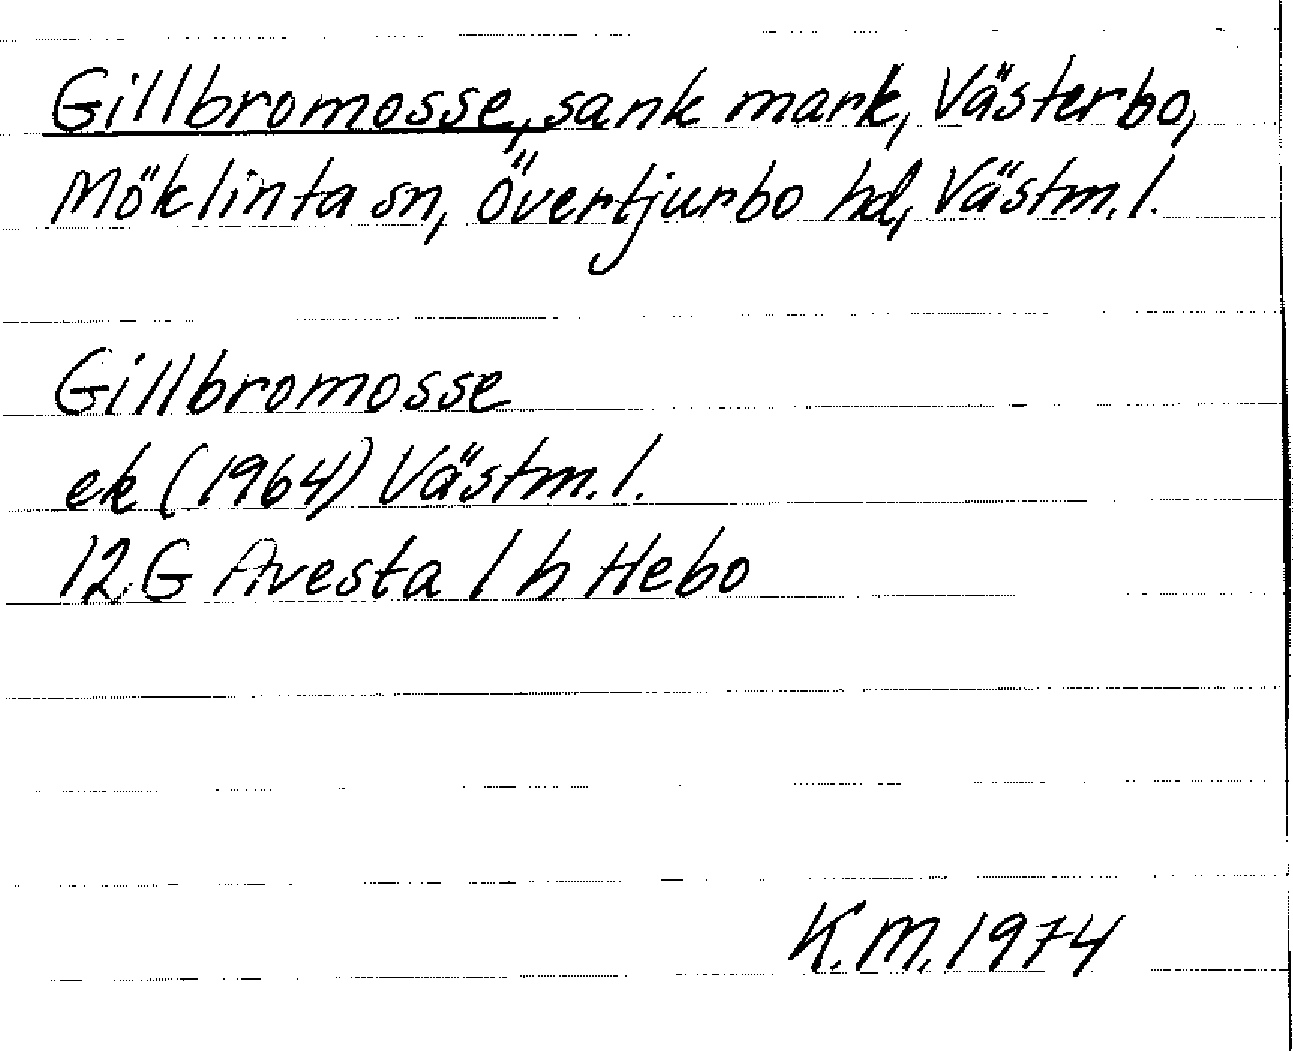 Gillbromosse, sank mark, Västerbo,
Möklinta sn, Övertjurbo hd, Västm.l.
Gillbromosse
ek (1964) Västm.l.
12 G Avesta 1 h Hebo
K.M. 1974